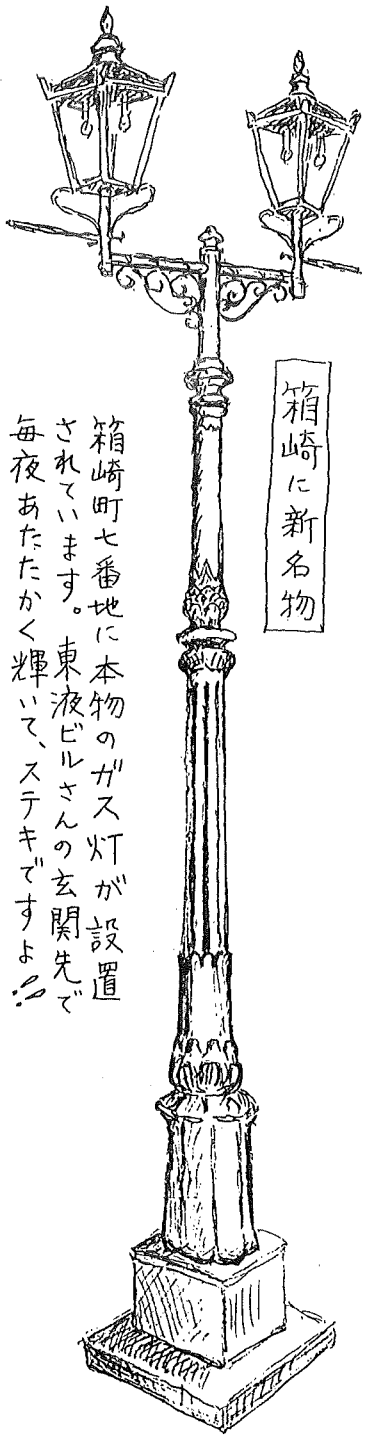 箱崎に新名物
箱崎町七番地に本物のガス灯が設置
されています。東液ビルさんの玄関先で
毎夜あたたかく輝いて、ステキですよ!!